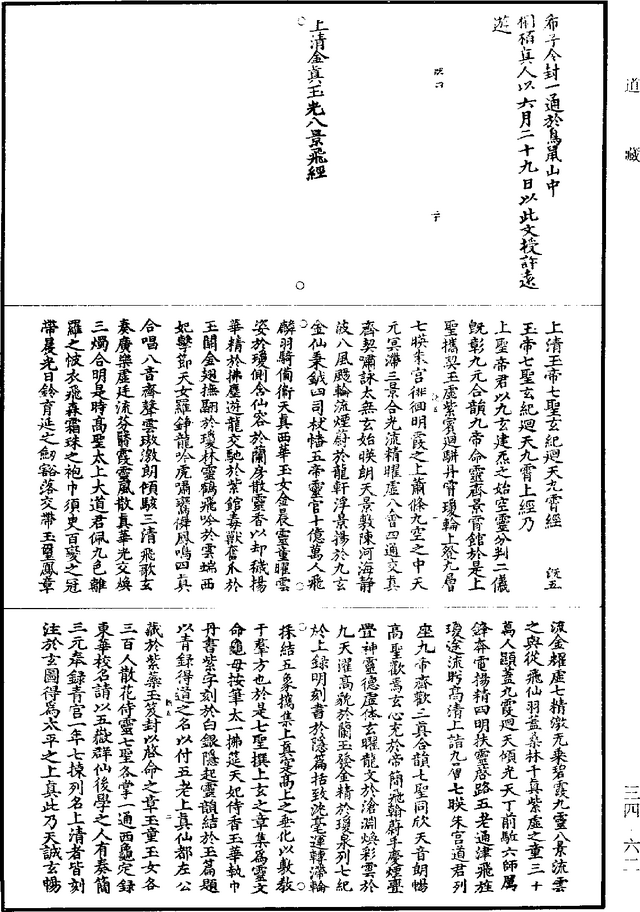 道藏
三四・六二
希子今封一通於鳥鼠山中
桐栢真人以六月二十九日以此文授許遠
遊
上清金真玉光八景飛經
上清玉帝七聖玄紀迴天九霄經
玉帝七聖玄紀迴天九霄上經乃
上聖帝君以九玄建炁之始空靈分判二儀
既彰九元合韻九帝命靈齊景霄館於是上
聖攜契玉虛紫賓迴駢丹霄瓊輪上登九層
七暎朱宮徘徊明霞之上蕭條九空之中天
元冥滯三景合光流精曜虛八會四通交真
齊契嘯詠太無玄始暎朗天景敷陳河海靜
波八風颷輪流煙蔚於龍軒浮景揚於九玄
金仙秉鉞四司杖幡五帝靈官十億萬人飛
麟羽騎備衛天真西華玉女金晨靈童曜雲
姿於瓊側含仙容於蘭房散靈香以却穢揚
華精於拂塵遊龍交馳於紫館毒獸奮爪於
玉闕金翅撫翮於瓊林靈鶴飛吟於雲端西
妃擊節天女羅錚龍吟虎嘯鸞儛鳳鳴四真
合唱八音齊聲雲璈激朗傾駭三清飛歌玄
奏廣樂虛廷流芬翳霞靈風散真華光交煥
三燭合明是時高聖太上大道君佩九色離
羅之帔衣飛森霜珠之袍巾須史百變之冠
帶晨光日鈴育延之劒豁落交帶玉璽鳳章
流金耀虛七精激炁乘碧霞九靈八景流雲
之輿從飛仙羽蓋桑林千真紫虛之童三十
萬人頤蓋九霞迴天傾光天丁前駈六師屬
鋒奔電揚精四明扶靈啓路五老通津飛旌
瓊途流眄高清上詣九層七暎朱宮道君列
座九帝齊歡三真合韻七聖同欣天音朗暢
高聖歡焉玄心充於帝簡飛翰蔚乎慶煙疊
疊神靈德虛休玄曜龍文於滄淵煥彩雲於
九天濯高貌於蘭玉發金精於瓊泉列七紀
於上錄明刻書於隱篇括致沈冤運轉滯輪
採結五象攜集上真定高上之垂化以敷教
于羣方也於是七聖撰上玄之章集爲靈文
命龜母按筆太一拂筵天妃侍香玉華執巾
丹書紫字刻於白銀隱起靈韻結於玉篇題
以青錄得道之名以付五老上真仙都左公
藏於紫蘂玉笈封以啓命之章玉童玉女各
三百人散花侍靈七聖各掌一通西龜定錄
東華校名請以五嶽群仙後學之人有奏簡
三元奉錄青宮一年七揀列名上清者皆刻
注於玄圖得爲太平之上真此乃天誠玄暢